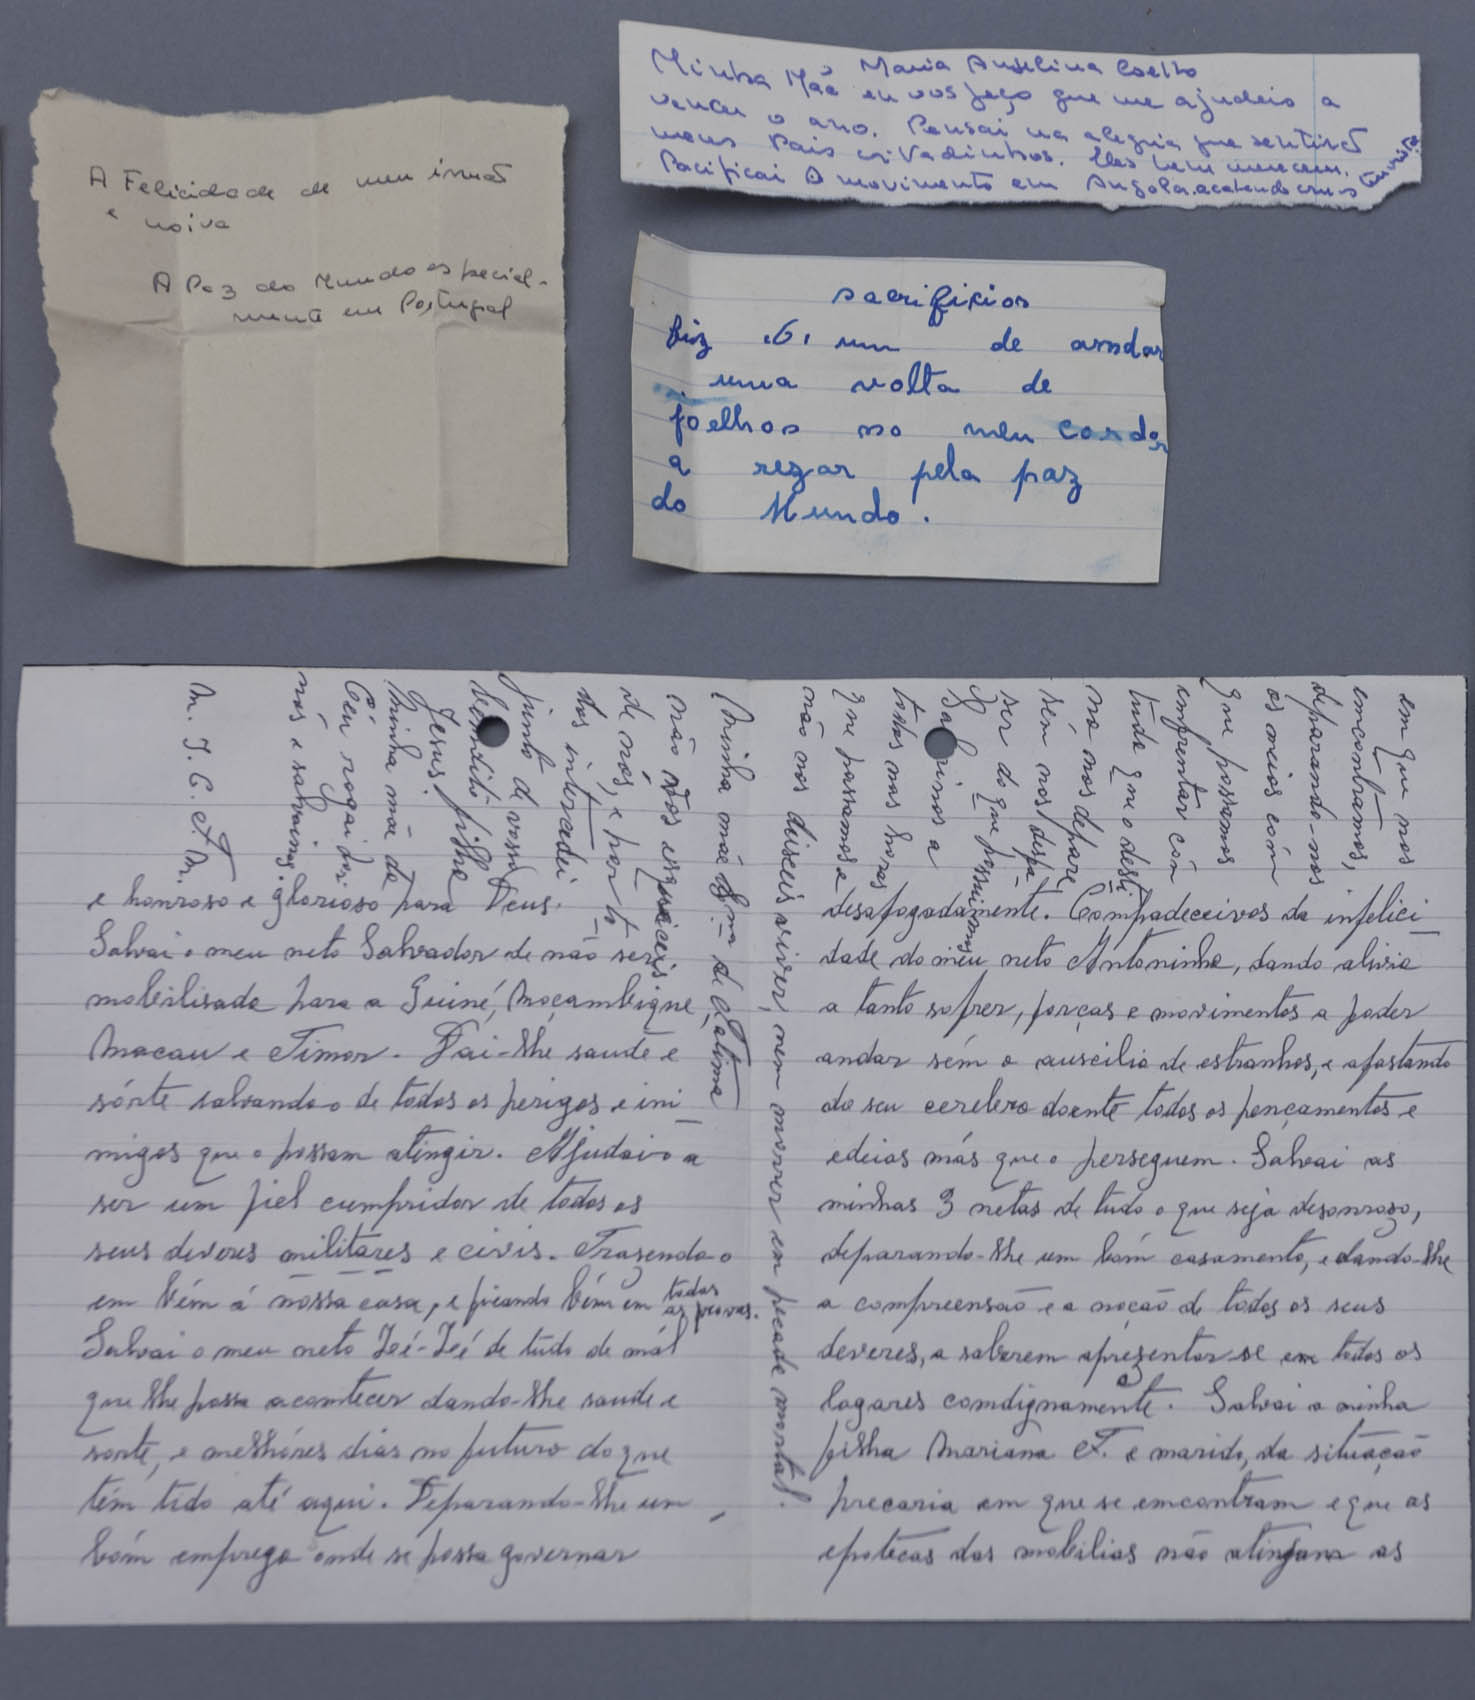 A Felicidade de meu irmão
e noiva
A Paz do Mundo especial-
mente em Portugal
Maria Angelina Coelho
Minha Mãe eu vos peço que me ajudeis a
vencer o ano. Pensai na alegria que sentirão
meus Pais cri  tadinhos. Eles bem merecem.
Pacificai o movimento em Angola. acabando com o
terrorismo
sacrificios
fiz .6. um de andar
uma volta de
joelhos no meu corredor
a rezar pela paz
do Mundo.
e honroso e glorioso para Deus.
Salvai o meu neto Salvador de não ser
mobilisado para a Guiné, Moçambique,
Macau e Timor. Dai-lhe saude e
sórte salvando-o de todos os perigos e ini
migos que o possam atingir. Ajudai-o a
ser um fiel cumpridor de todos os
seus deveres militares e civis. Trasendo-o
em bém á nossa casa, e ficando bém em todas
as provas.
Salvai o meu neto Zé-Zé de tudo de mál
que lhe possa acontecer dando-lhe saude e
sorte, e melhóres dias no futuro do que
tém tido até aqui. Deparando-lhe um
bóm emprego onde se possa governar
desafogadamente. Compadeceivos da infelici
dade do meu neto Antoninho, dando alivio
a tanto sofrer, forças e movimentos a poder
andar sém o auscilio de estranhos, e afastando
do seu cerebro doente todos os pençamentos e
edeias más que o perseguem. Salvai as
minhas 3 netas de tudo o que seja desonrozo,
deparando-lhe um bóm casamento, e dando-lhe
a compreensão e a noção de todos os seus
deveres, a saberem aprezentar-se em todos os
logares comdignamente. Salvai a minha
filha Mariana F. e marido, da situação
precaria em que se emcontram e que as
epotecas das mobilias não atinjam as
em que nos
emcontrâmos,
deparando-nos
os meios com
que possamos
emfrentar com
tudo que o desti
no nos depare
sém nos desfa-
ser do que possuimos
a
todas nas horas
que passamos e
não nos deixeis viver, nem morrer em pecado mortal.
Minha mãe Sma. de Fátima
não vos esqueiceis
de nós, e por tó
dos intercedei
junto de vosso
bemdito filho
Jesus.
Minha mãe do
Céu rogai por
nós e salvainos.
M. J. C. F. M.